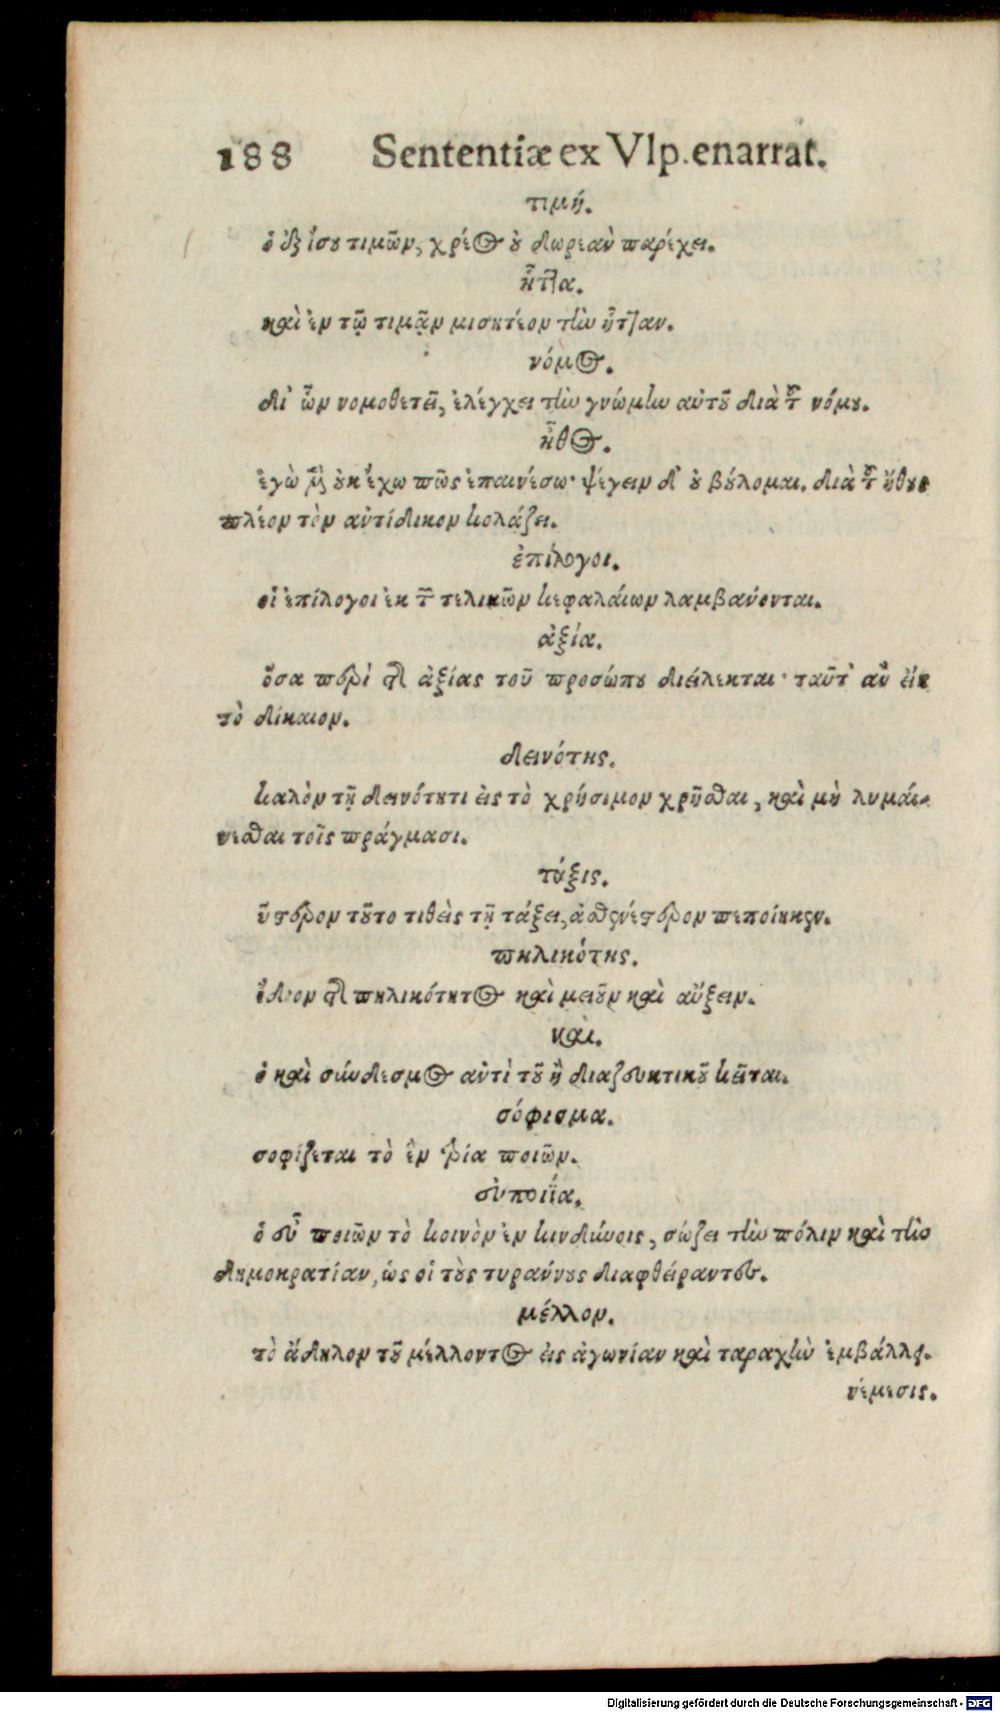 188 Sententiæ ex Vlp. enarrat.
τιμή.
ὁ ἐξ ἴσου τιμῶν, χρέος οὐ δωρεὰν παρέχει.
ἧττα.
καὶ ἐν τῷ τιμᾷν μισητέον τὴν ἧτταν.
νόμος.
δι' ὧν νομοθετεῖ, ἐλέγχει τὴν γνώμην αὐτοῦ διὰ τοῦ νόμου.
ἦθος.
ἐγὼ μὲν οὐκ ἔχω πῶς ἐπαινέσω· ψέγειν δ' οὐ βούλομαι. διὰ τοῦ ἤθους
πλέον τὸν ἀντίδικον κολάζει.
ἐπίλογοι.
οἱ ἐπίλογοι ἐκ τῶν τελικῶν κεφαλαίων λαμβάνονται.
ἀξία.
ὅσα περὶ τῆς ἀξίας τοῦ προσώπου διείλεκται· ταῦτ' ἂν εἴη
τὸ δίκαιον.
δεινότης.
καλὸν τῇ δεινότητι εἰς τὸ χρήσιμον χρῆσθαι, καὶ μὴ λυμαί-
νεσθαι τοῖς πράγμασι.
τάξις.
ὕστερον τοῦτο τιθεὶς τῇ τάξει, ἀσθενέστερον πεποίηκεν.
πηλικότης.
ἴδιον τῆς πηλικότητος καὶ μειοῦν καὶ αὔξειν.
καὶ.
ὁ καὶ σύνδεσμος ἀντὶ τοῦ ἢ διαζευκτικοῦ κεῖται.
σόφισμα.
σοφίζεται τὸ ἓν τρία ποιῶν.
εὐποιία.
ὁ εὖ ποιῶν τὸ κοινὸν ἐν κινδύνοις, σώζει τὴν πόλιν καὶ τὴν
δημοκρατίαν, ὡς οἱ τοὺς τυράννους διαφθείραντες.
μέλλον.
τὸ ἄδηλον τοῦ μέλλοντος εἰς ἀγωνίαν καὶ ταραχὴν ἐμβάλλει.
νέμεσις.
Digitalisierung gefördert durch die Deutsche Forschungsgemeinschaft - DFG